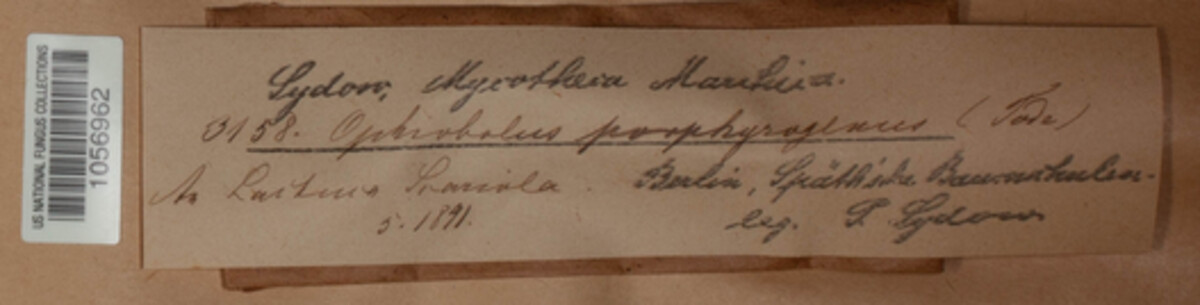 US NATIONAL FUNGUS COLLECTIONS
1056962
Sydow, Mycotheca Marchica.
3158. Ophiobolus porphyrogonus (Tode)
An Lactuca Scariola. Berlin, Späth'sche Baumschulen.
5. 1891. leg. P. Sydow